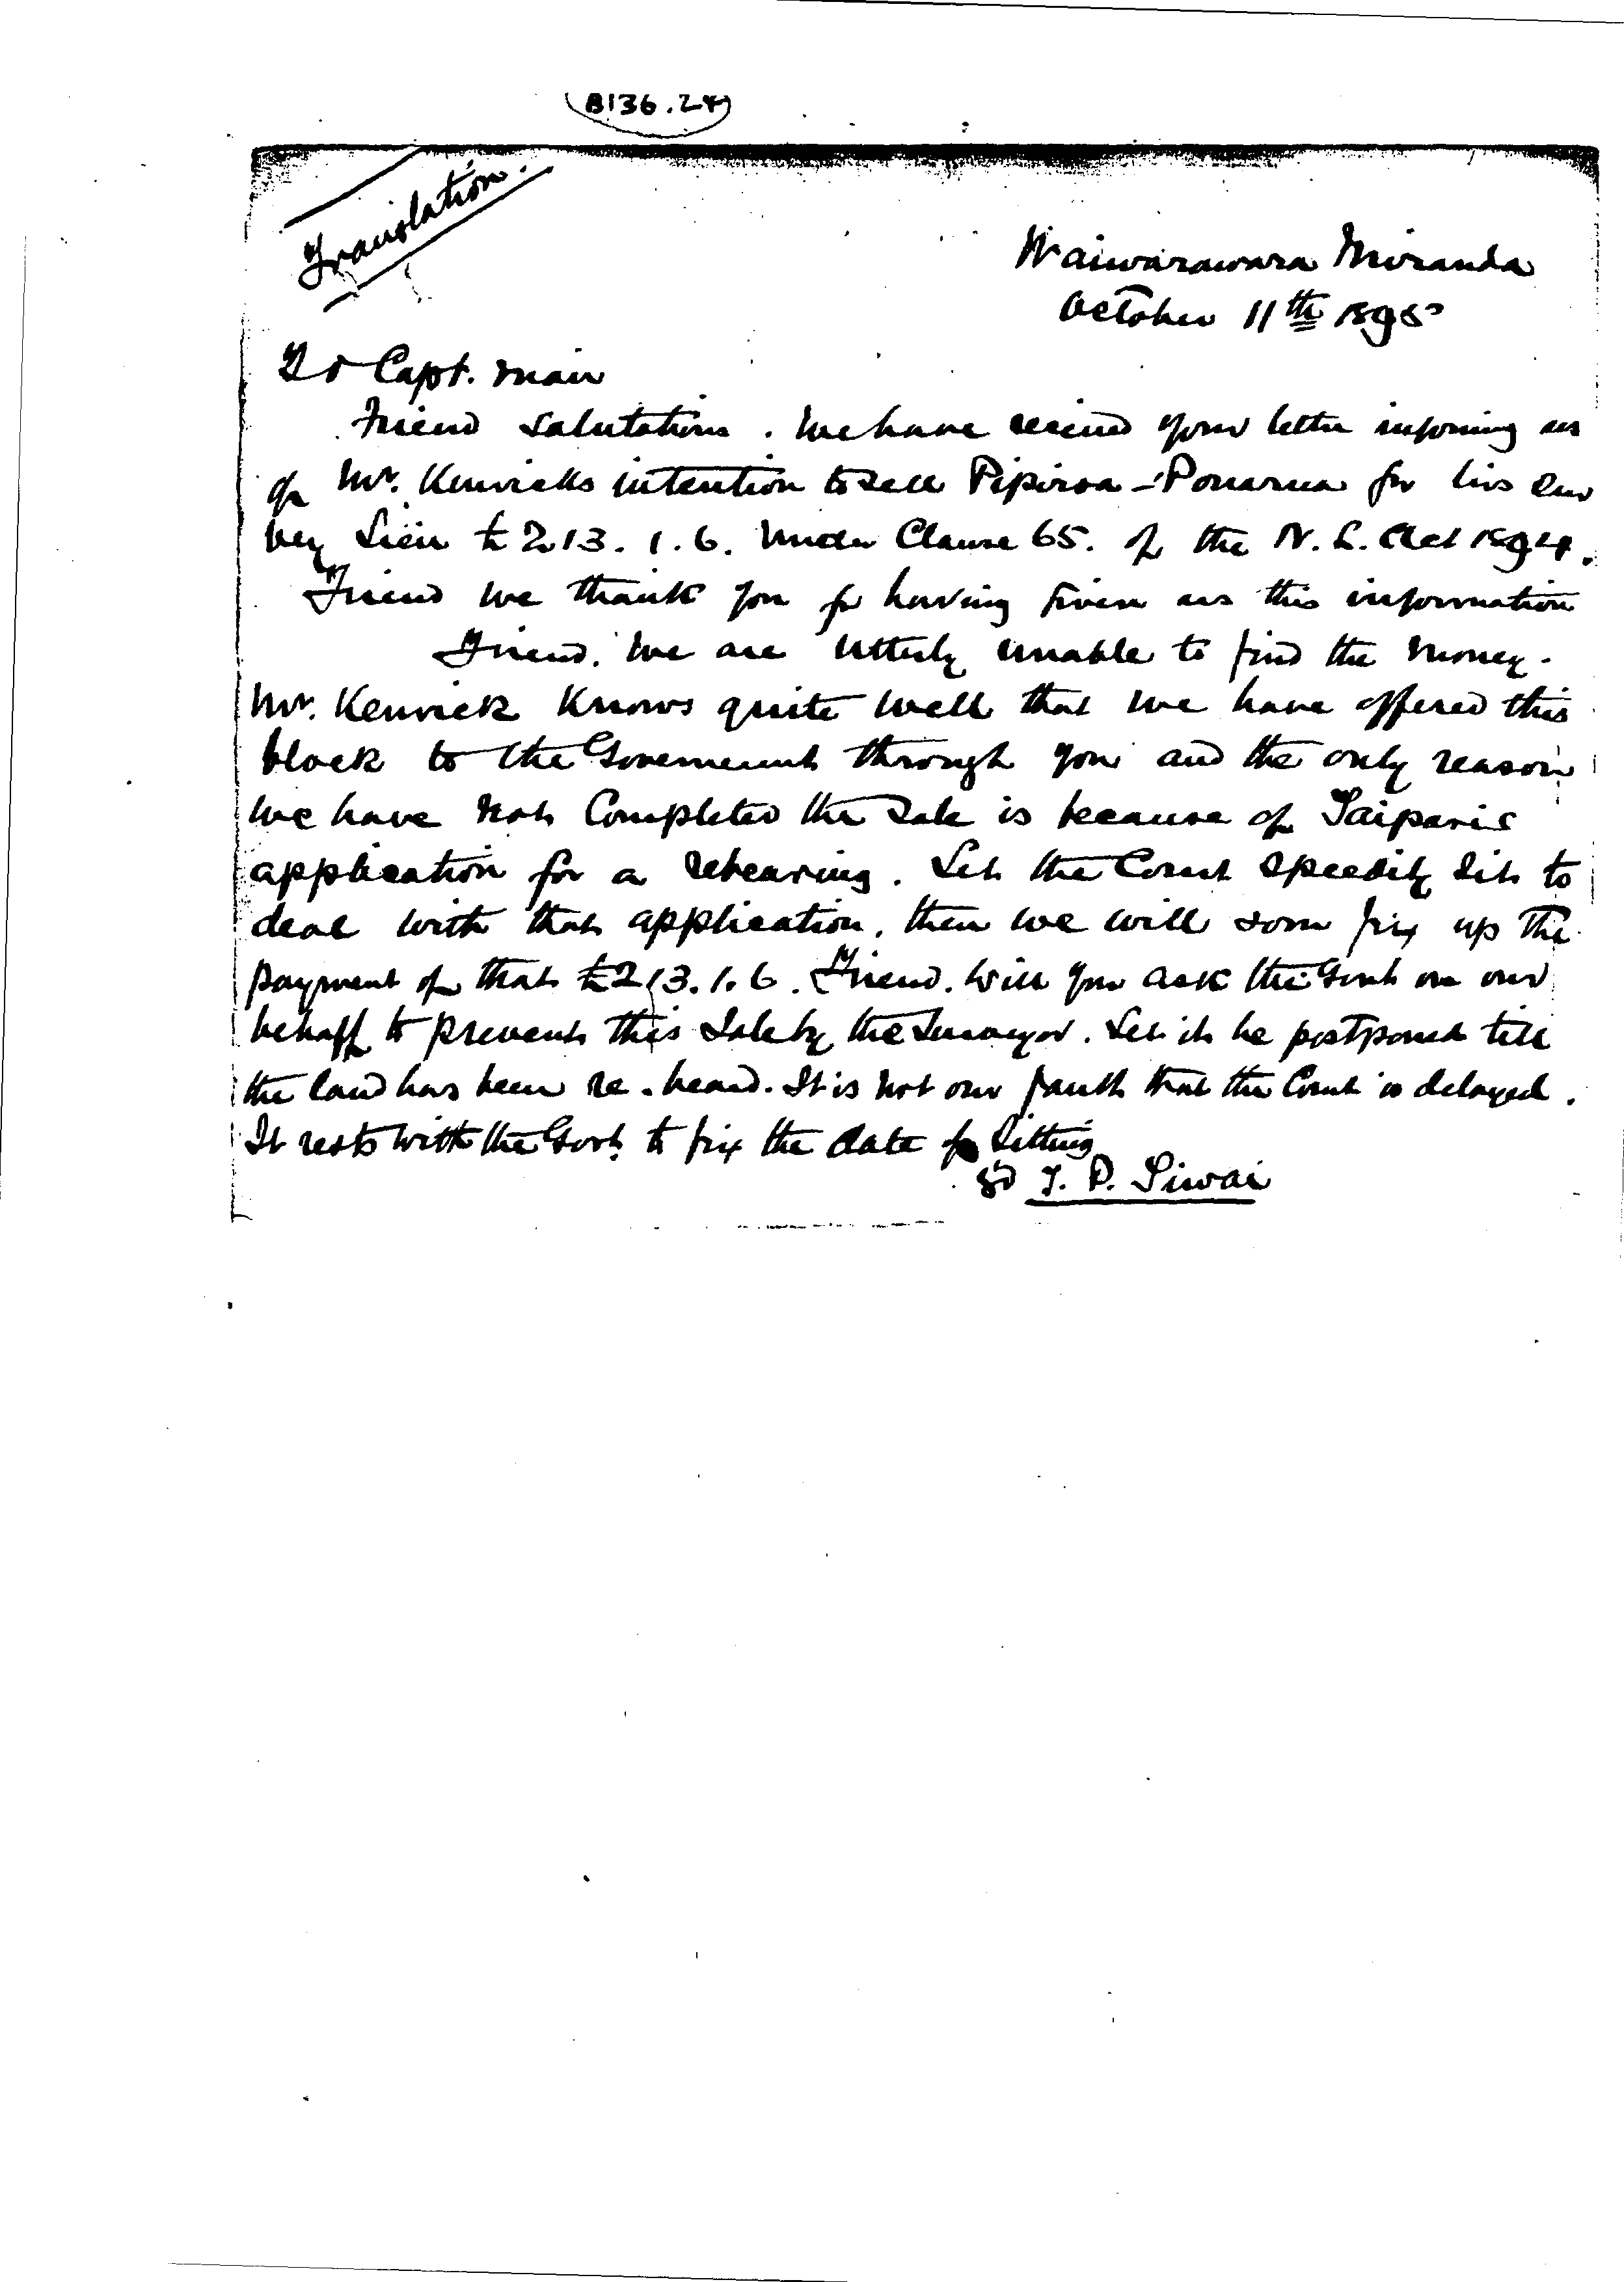 B136.24
Translation.
Waiwarawara Miranda
October 11th 1895
To Capt. Mair
Friend salutations. We have received your letter informing us
of Mr. Kenricks intention to sell Pipiroa-Pouarua for his Sur
vey Lien £213.1.6. Under Clause 65. of the N. L. Act 1894.
Friend we thank you for having given us this information
Friend. We are utterly unable to find the money.
Mr. Kenrick knows quite well that we have offered this
block to the Government through you and the only reason
we have not Completed the Sale is because of Taiparis
application for a rehearing. Let the Court speedily sit to
deal with that application, then we will soon fix up the
payment of that £213.1.6. Friend. Will you ask the Govt on our
behalf to prevent this Sale by the Surveyor. Let it be postponed till
the land has been re-heard. It is not our fault that the Court is delayed.
It rests with the Govt. to fix the date of Sitting
Sd T. P. Tiwai